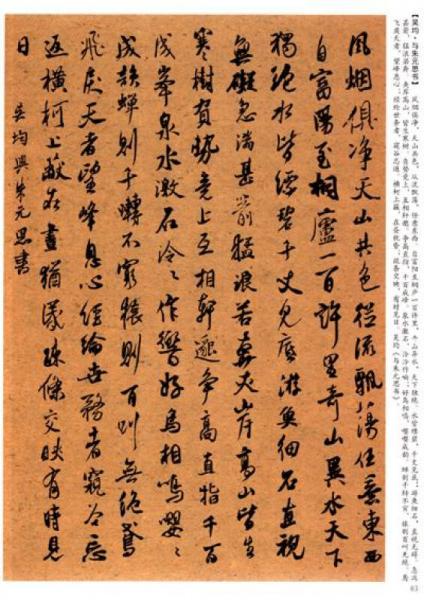 【吴均·与朱元思书】 风烟俱净,天山共色。从流飘荡,任意东西。自富阳至桐庐一百许里,奇山异水,天下独绝。水皆缥碧,千丈见底;游鱼细石,直视无碍。急湍
甚箭,猛浪若奔。夹岸高山,皆生寒树。负势竞上,互相轩邈,争高直指,千百成峰。泉水激石,泠泠作响;好鸟相鸣,嘤嘤成韵。蝉则千转不穷,猿则百叫无绝。鸢
飞戾天者,望峰息心;经纶世务者,窥谷忘返。横柯上蔽,在昼犹昏;疏条交映,有时见日。吴均《与朱元思书》
63
風烟俱净天山共色從流飄蕩任意東西
自富陽至桐廬一百許里奇山異水天下
獨絶水皆縹碧千丈見底游魚細石直視
無礙急湍甚箭猛浪若奔夾岸高山皆生
寒樹負勢竞上互相軒邈争高直指千百
成峯泉水激石泠々作響好鳥相鳴嚶々
成韻蟬則千囀不窮猿則百叫無絶鳶
飛戾天者望峰息心經綸世務者窺谷忘
返横柯上蔽在晝猶昏疎條交映有時見
日 吴均與朱元思書